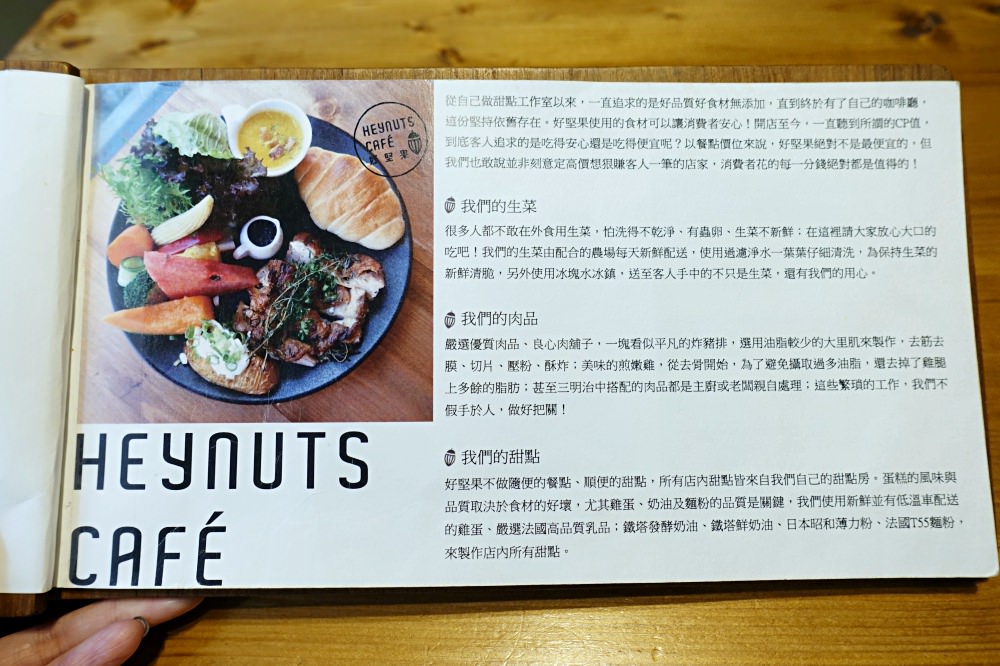 HEYNUTS
CAFÉ
好堅果
HEYNUTS
CAFÉ
從自己做甜點工作室以來，一直追求的是好品質好食材無添加，直到終於有了自己的咖啡廳，
這份堅持依舊存在。好堅果使用的食材可以讓消費者安心！開店至今，一直聽到所謂的CP值，
到底客人追求的是吃得安心還是吃得便宜呢？以餐點價位來說，好堅果絕對不是最便宜的，但
我們也敢說並非刻意定高價想狠賺客人一筆的店家，消費者花的每一分錢絕對都是值得的！
我們的生菜
很多人都不敢在外食用生菜，怕洗得不乾淨、有蟲卵、生菜不新鮮；在這裡請大家放心大口的
吃吧！我們的生菜由配合的農場每天新鮮配送，使用過濾淨水一葉葉仔細清洗，為保持生菜的
新鮮清脆，另外使用冰塊水冰鎮，送至客人手中的不只是生菜，還有我們的用心。
我們的肉品
嚴選優質肉品、良心肉舖子，一塊看似平凡的炸豬排，選用油脂較少的大里肌來製作，去筋去
膜、切片、壓粉、酥炸；美味的煎嫩雞，從去骨開始，為了避免攝取過多油脂，還去掉了雞腿
上多餘的脂肪；甚至三明治中搭配的肉品都是主廚或老闆親自處理；這些繁瑣的工作，我們不
假手於人，做好把關！
我們的甜點
好堅果不做隨便的餐點、順便的甜點，所有店內甜點皆來自我們自己的甜點房。蛋糕的風味與
品質取決於食材的好壞，尤其雞蛋、奶油及麵粉的品質是關鍵，我們使用新鮮並有低溫車配送
的雞蛋、嚴選法國高品質乳品；鐵塔發酵奶油、鐵塔鮮奶油、日本昭和薄力粉、法國T55麵粉，
來製作店內所有甜點。